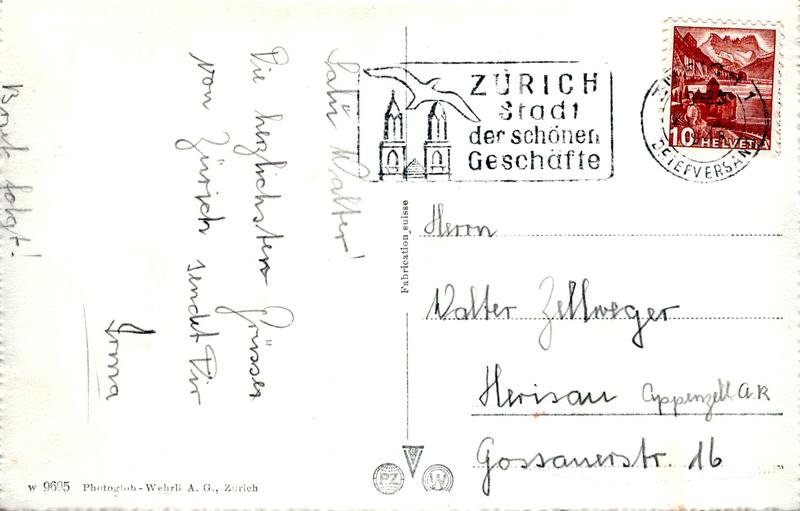 Salü Walter!
Die herzlichsten Grüsse
von Zürich sendet Dir
Irma
Brief folgt!
ZÜRICH
Stadt
der schönen
Geschäfte
10 HELVETIA
BRIEFVERSAND
Fabrication suisse
Herrn
Walter Zellweger
Herisau Appenzell A.R
Gossauerstr. 16
PZ W
W 9695 Photoglob-Wehrli A. G., Zürich